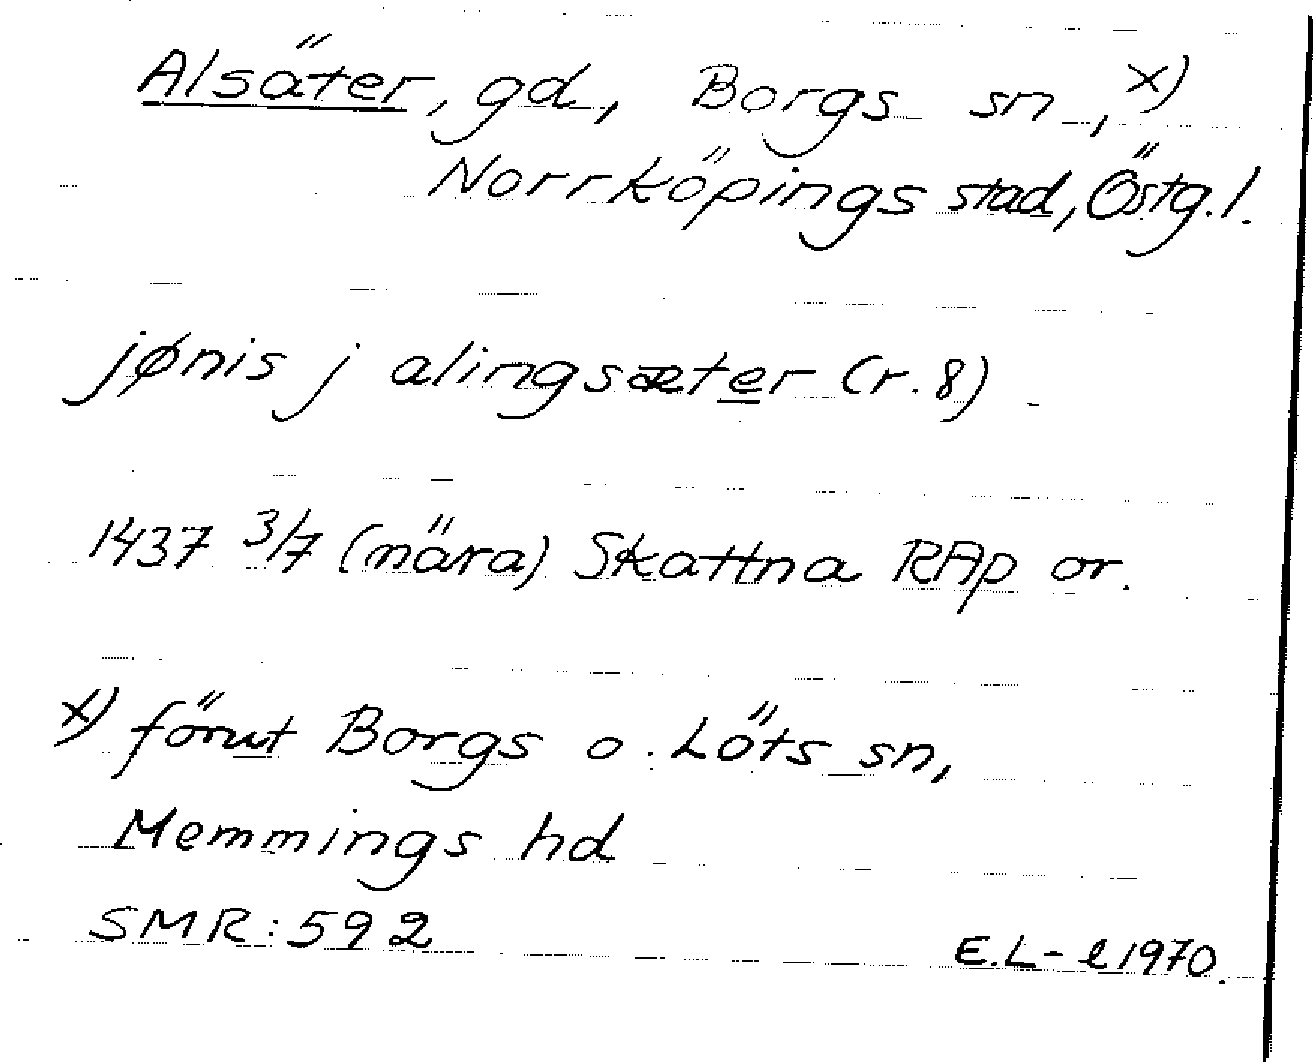 Alsäter, gd, Borgs sn, x)
Norrköpings stad, Östg.l.
jønis j alingsæter (r. 8)
1437 3/7 (nära) Skattna RAp or.
x) förut Borgs o. Löts sn,
Memmings hd
SMR: 592
E.L-l 1970.